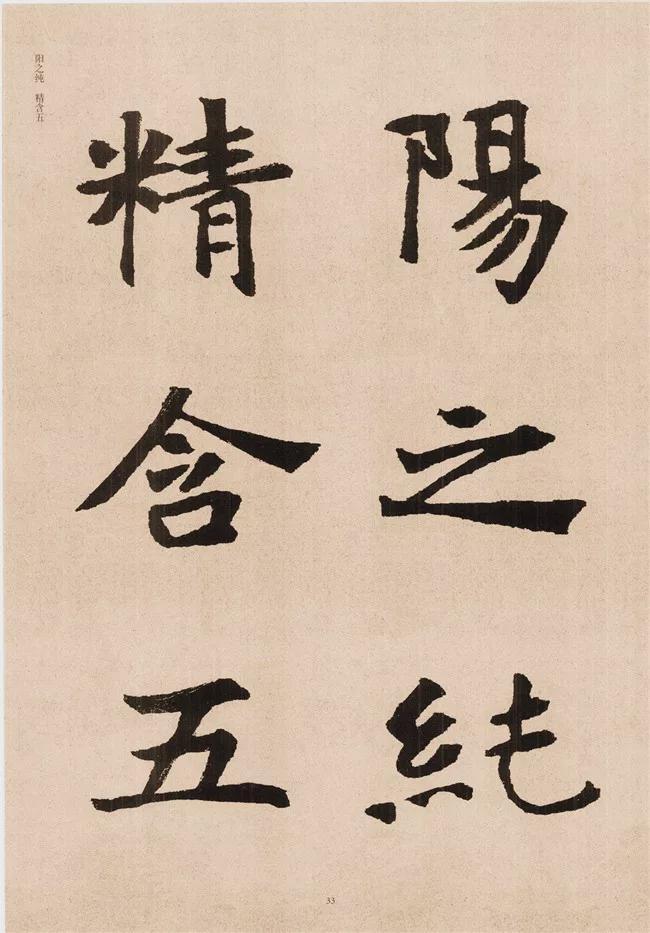 陽之純
精含五
阳之纯 精含五
33